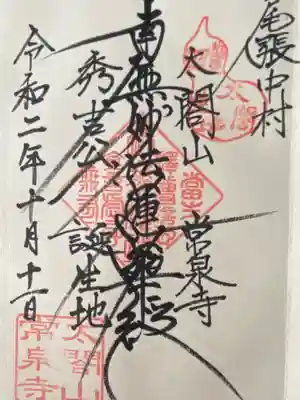 尾張中村
太閤山 常泉寺
南無妙法蓮華経
秀吉公 誕生地
令和二年十月十一日
太閤山
常泉寺